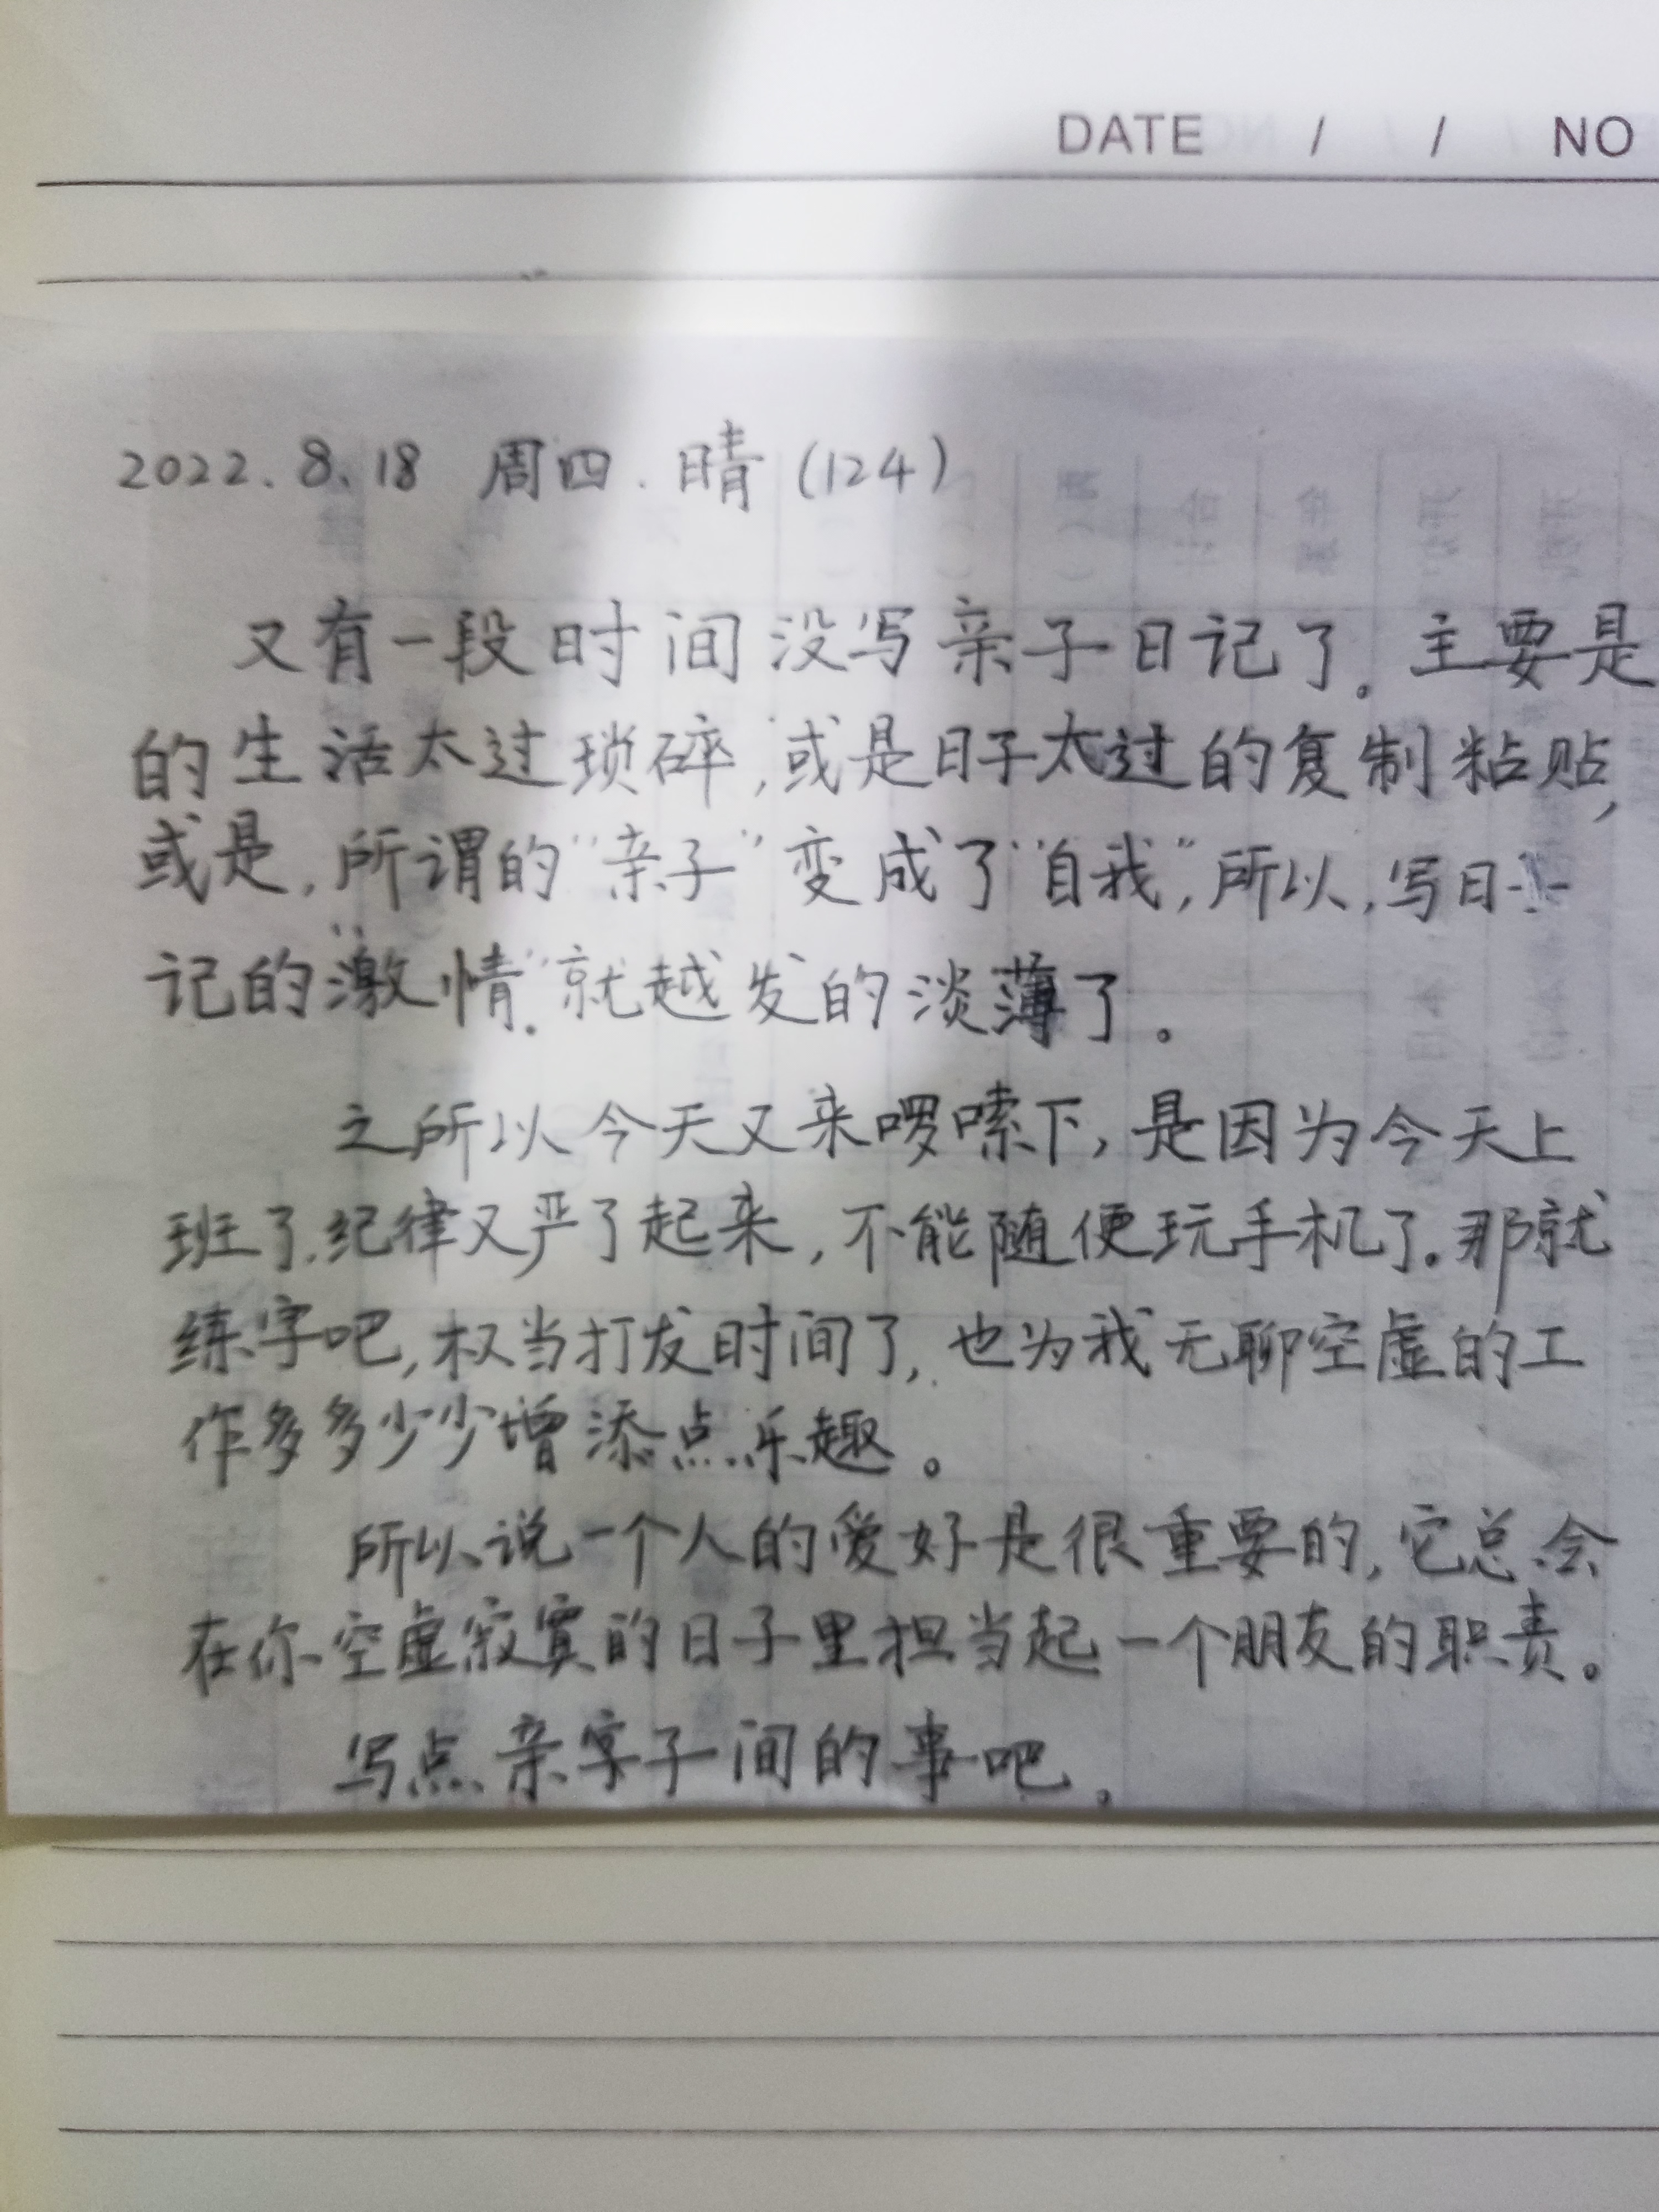 DATE / / NO
2022.8.18 周四.晴(124)
又有一段时间没写亲子日记了。主要是
的生活太过琐碎,或是日子太过的复制粘贴,
或是,所谓的"亲子"变成了"自我",所以,写日
记的"激情"就越发的淡薄了。
之所以今天又来啰嗦下,是因为今天上
班了.纪律又严了起来,不能随便玩手机了。那就
练字吧,权当打发时间了,也为我无聊空虚的工
作多多少少增添点乐趣。
所以说一个人的爱好是很重要的,它总会
在你空虚寂寞的日子里担当起一个朋友的职责。
写点亲字子间的事吧.